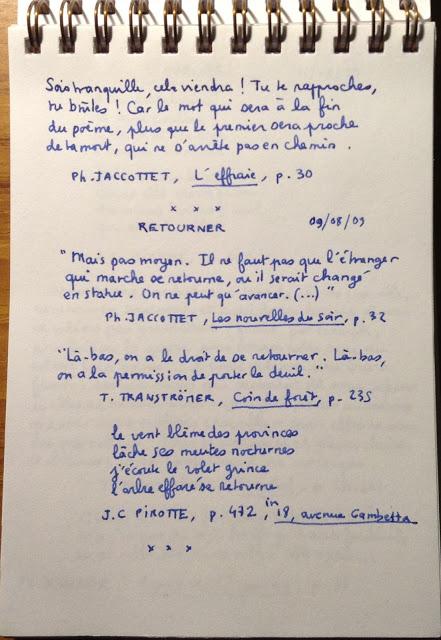 Sois tranquille, cela viendra ! Tu te rapproches,
tu brûles ! Car le mot qui sera à la fin
du poème, plus que le premier sera proche
de ta mort, qui ne s'arrête pas en chemin.
Ph. JACCOTTET, L'effraie, p. 30
x x x
RETOURNER 09/08/09
"Mais pas moyen. Il ne faut pas que l'étranger
qui marche se retourne, ou il serait changé
en statue. On ne peut qu'avancer. (...)"
Ph. JACCOTTET, Les nouvelles du soir, p. 32
"Là-bas, on a le droit de se retourner. Là-bas,
on a la permission de porter le deuil."
T. TRANSTRÖMER, Coin de forêt, p. 235
le vent blême des provinces
lâche ses meutes nocturnes
j'écoute le volet grince
l'arbre effaré se retourne
J.C PIROTTE, p. 472, in 18, avenue Gambetta
x x x